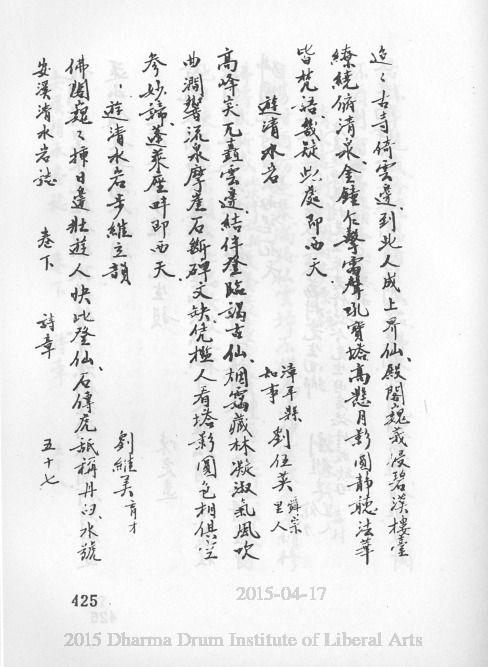 迢〻古寺倚雲邊、到此人成上界仙、殿閣巍峩浸碧漢樓臺
繚繞俯清泉、金鐘乍擊雷聲吼寶塔高懸月影圓靜聽法華
皆梵語、幾疑此處即西天
遊清水岩
漳平縣知事 劉伍英 爵宗里人
高峰突兀矗雲邊、結伴登臨謁古仙、烟靄藏林凝淑氣風吹
曲澗響流泉、摩崖石斷碑文缺、凭檻人看塔影圓色相俱空
参妙諦、蓬萊座畔即西天
〻遊清水岩步維立韻
劉維美 育才
佛閣巍〻插日邊壯遊人快此登仙、石傳虎舐稱丹臼、水號
安溪清水岩誌 卷下 詩章 五十七
425
2015-04-17
2015 Dharma Drum Institute of Liberal Arts